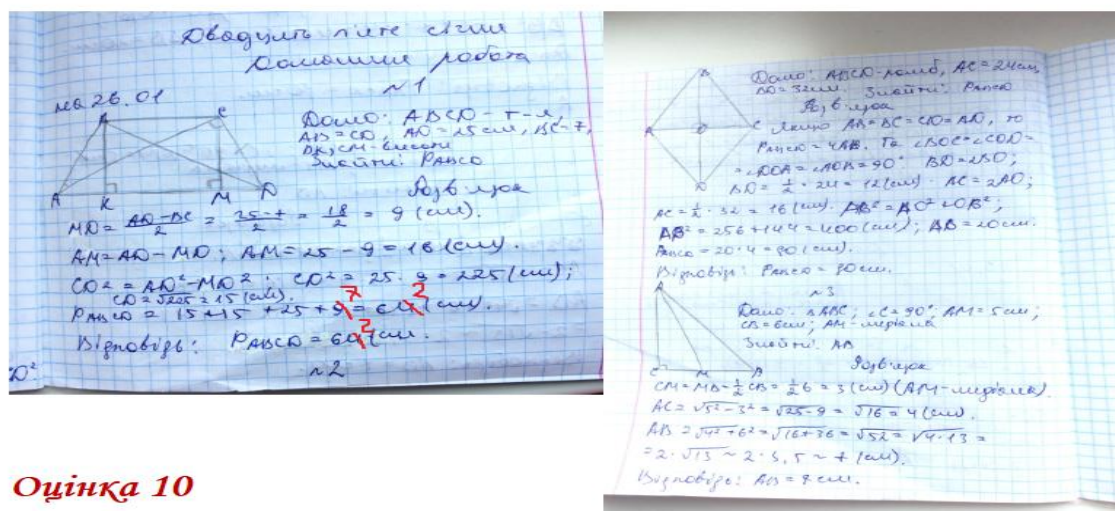 Двадцять п'яте січня
Домашня робота
на 26.01
№1
Дано: ABCD - т-я,
AB = CD, AD = 25 см, BC - 7,
BK, CM - висоти
Знайти: PABCD
Розв'язок
MD = AD - BC / 2 = 25 - 7 / 2 = 18 / 2 = 9 (см).
AM = AD - MD; AM = 25 - 9 = 16 (см).
CD² = AD² - MD²; CD² = 25 · 9 = 225 (см);
CD = √225 = 15 (см).
PABCD = 15 + 15 + 25 + 7 = 62 (см)
Відповідь: PABCD = 62 см.
№2
Дано: ABCD - ромб, AC = 24 см,
BD = 32 см. Знайти: PABCD
Розв'язок
Якщо AB = BC = CD = AD, то
PABCD = 4AB. Та ∠BOC = ∠COD =
= ∠DOA = ∠AOB = 90° BD = 2BO;
BD = 1/2 · 24 = 12 (см). AC = 2AO;
AC = 1/2 · 32 = 16 (см). AB² = AO² + OB²;
AB² = 256 + 144 = 400 (см); AB = 20 см.
PABCD = 20 · 4 = 80 (см).
Відповідь: PABCD = 80 см.
№3
Дано: △ABC, ∠C = 90°; AM = 5 см;
CB = 6 см; AM - медіана
Знайти: AB
Розв'язок
CM = MB = 1/2 CB = 1/2 6 = 3 (см) (AM - медіана).
AC = √5² - 3² = √25 - 9 = √16 = 4 (см).
AB = √4² + 6² = √16 + 36 = √52 = √4 · 13 =
= 2 · √13 ~ 2 · 3,5 ~ 7 (см).
Відповідь: AB = 7 см.
Оцінка 10